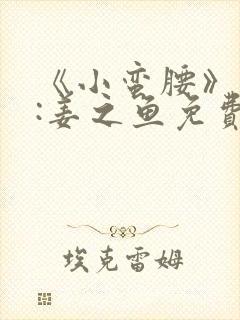 《小蛮腰》
:姜之鱼免費
埃克雷姆